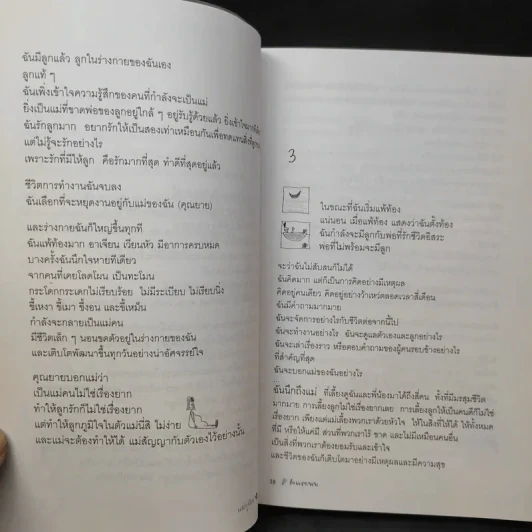 ฉันมีลูกแล้ว ลูกในร่างกายของฉันเอง
ลูกแท้ ๆ
ฉันเพิ่งเข้าใจความรู้สึกของคนที่กำลังจะเป็นแม่
ยิ่งเป็นแม่ที่ขาดพ่อของลูกอยู่ใกล้ ๆ อยู่รับรู้ด้วยแล้ว
ฉันรักลูกมาก อยากรักให้เป็นสองเท่าเหมือนกันเพื่อทดแทนสิ่งที่
แต่ไม่รู้จะรักอย่างไร
เพราะรักที่มีให้ลูก คือรักมากที่สุด ทำดีที่สุดอยู่แล้ว
ชีวิตการทำงานฉันจบลง
ฉันเลือกที่จะหยุดงานอยู่กับแม่ของฉัน (คุณยาย)
และร่างกายฉันก็ใหญ่ขึ้นทุกที
ฉันแพ้ท้องมาก อาเจียน เวียนหัว มีอาการครบหมด
บางครั้งฉันนึกใจหายทีเดียว
จากคนที่เคยโลดโผน เป็นทะโมน
กระโดกกระเดกไม่เรียบร้อย ไม่มีระเบียบ ไม่เรียบนิ่ง
ขี้เหงา ขี้เมา ขี้งอน และขี้เหม็น
กำลังจะกลายเป็นแม่คน
มีชีวิตเล็ก ๆ นอนขดตัวอยู่ในร่างกายของฉัน
และเติบโตพัฒนาขึ้นทุกวันอย่างน่าอัศจรรย์ใจ
คุณยายบอกแม่ว่า
เป็นแม่คนไม่ใช่เรื่องยาก
ทำให้ลูกรักก็ไม่ใช่เรื่องยาก
แต่ทำให้ลูกภูมิใจในตัวแม่นี่สิ ไม่ง่าย
และแม่จะต้องทำให้ได้ แม่สัญญากับตัวเองไว้อย่างนั้น
3
ในขณะที่ฉันเริ่มแพ้ท้อง
แน่นอน เมื่อแพ้ท้อง แสดงว่าฉันตั้งท้อง
ฉันกำลังจะมีลูกกับพ่อที่รักชีวิตอิสระ
พ่อที่ไม่พร้อมจะมีลูก
จะว่าฉันไม่สับสนก็ไม่ได้
ฉันคิดมาก แต่ก็เป็นการคิดอย่างมีเหตุผล
คิดอยู่คนเดียว คิดอยู่อย่างว้าเหว่ตลอดเวลาสี่เดือน
ฉันมีคำถามมากมาย
ฉันจะจัดการอย่างไรกับชีวิตต่อจากนี้ไป
ฉันจะทำงานอย่างไร ฉันจะดูแลตัวเองและลูกอย่างไร
ฉันจะเล่าเรื่องราว หรือตอบคำถามของผู้คนรอบข้างอย่างไร
ที่สำคัญที่สุด
ฉันจะบอกแม่ของฉันอย่างไร
ฉันนึกถึงแม่ ที่เลี้ยงดูฉันและพี่น้องมาได้ถึงสี่คน ทั้งที่มีมรสุมชีวิต
มากมาย การเลี้ยงลูกไม่ใช่เรื่องยากเลย การเลี้ยงลูกให้เป็นคนดีก็ไม่ใช่
เรื่องยาก เพียงแต่แม่เลี้ยงพวกเราด้วยหัวใจ ให้ในสิ่งที่ให้ได้ ให้ทั้งหมด
ที่มี หรือให้แค่มี ส่วนที่พวกเราไร้ ขาด และไม่มีเหมือนคนอื่น
เป็นสิ่งที่พวกเราต้องยอมรับและเข้าใจ
และชีวิตของฉันก็เติบโตมาอย่างมีเหตุผลและมีความสุข